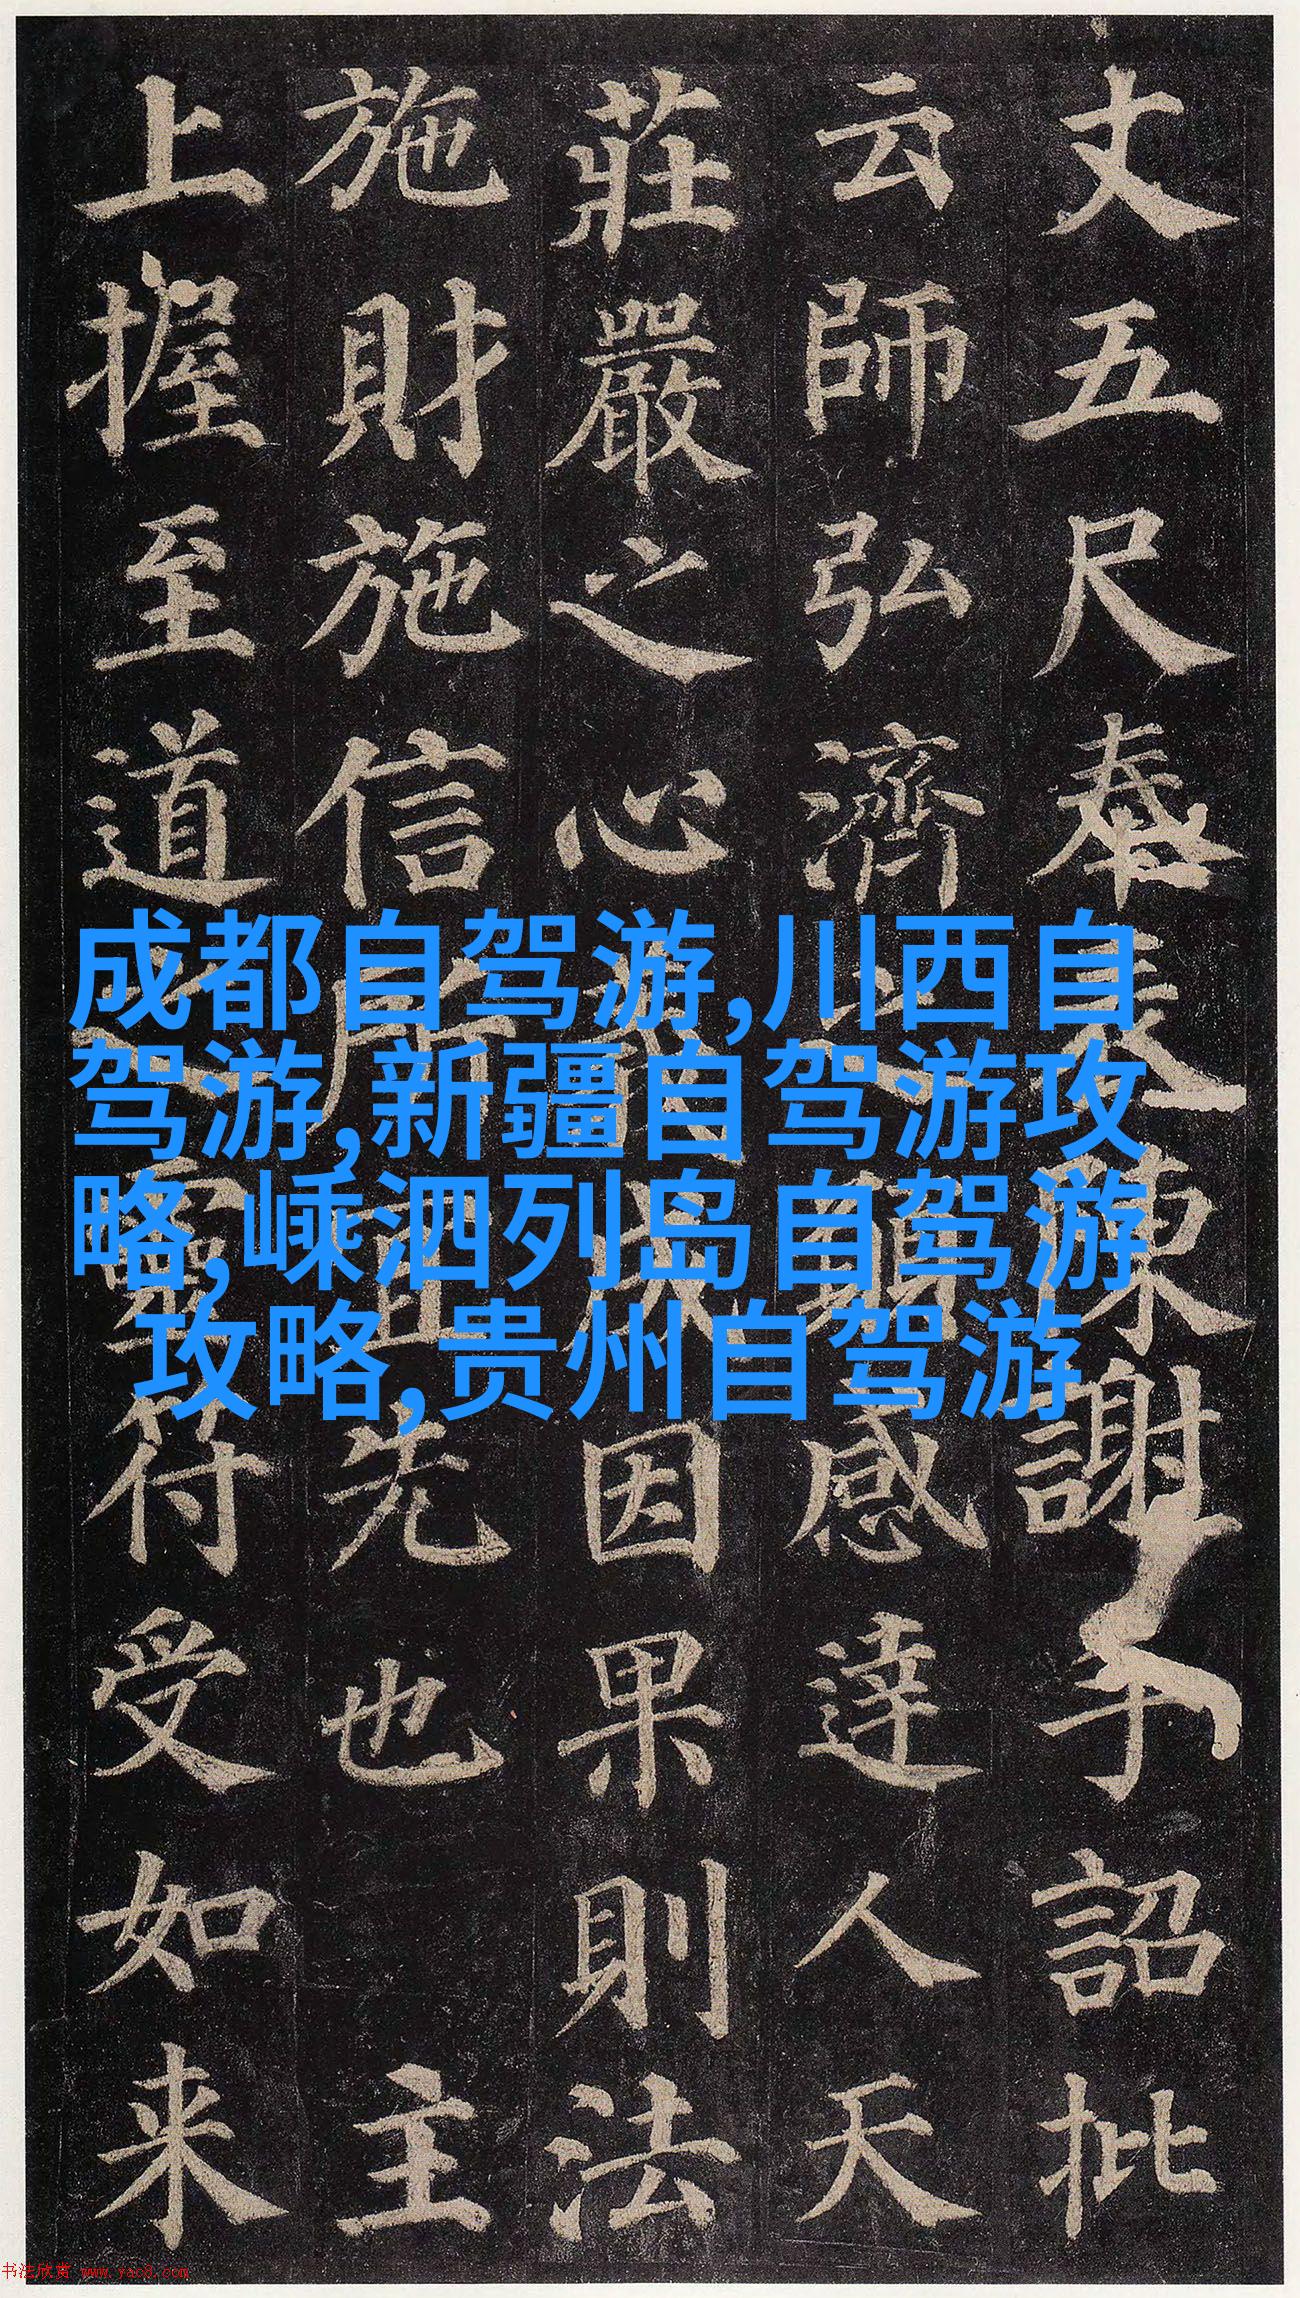 丈五尺奉表陳謝手詔批
云師弘濟之願感達人天
莊嚴之心成因果則法
施財施信所宜先也 主
上握至道之靈符受如来
成都自驾游,川西自
驾游,新疆自驾游攻
略,嵊泗列岛自驾游
攻略,贵州自驾游
书法欣赏 www.yac8.com